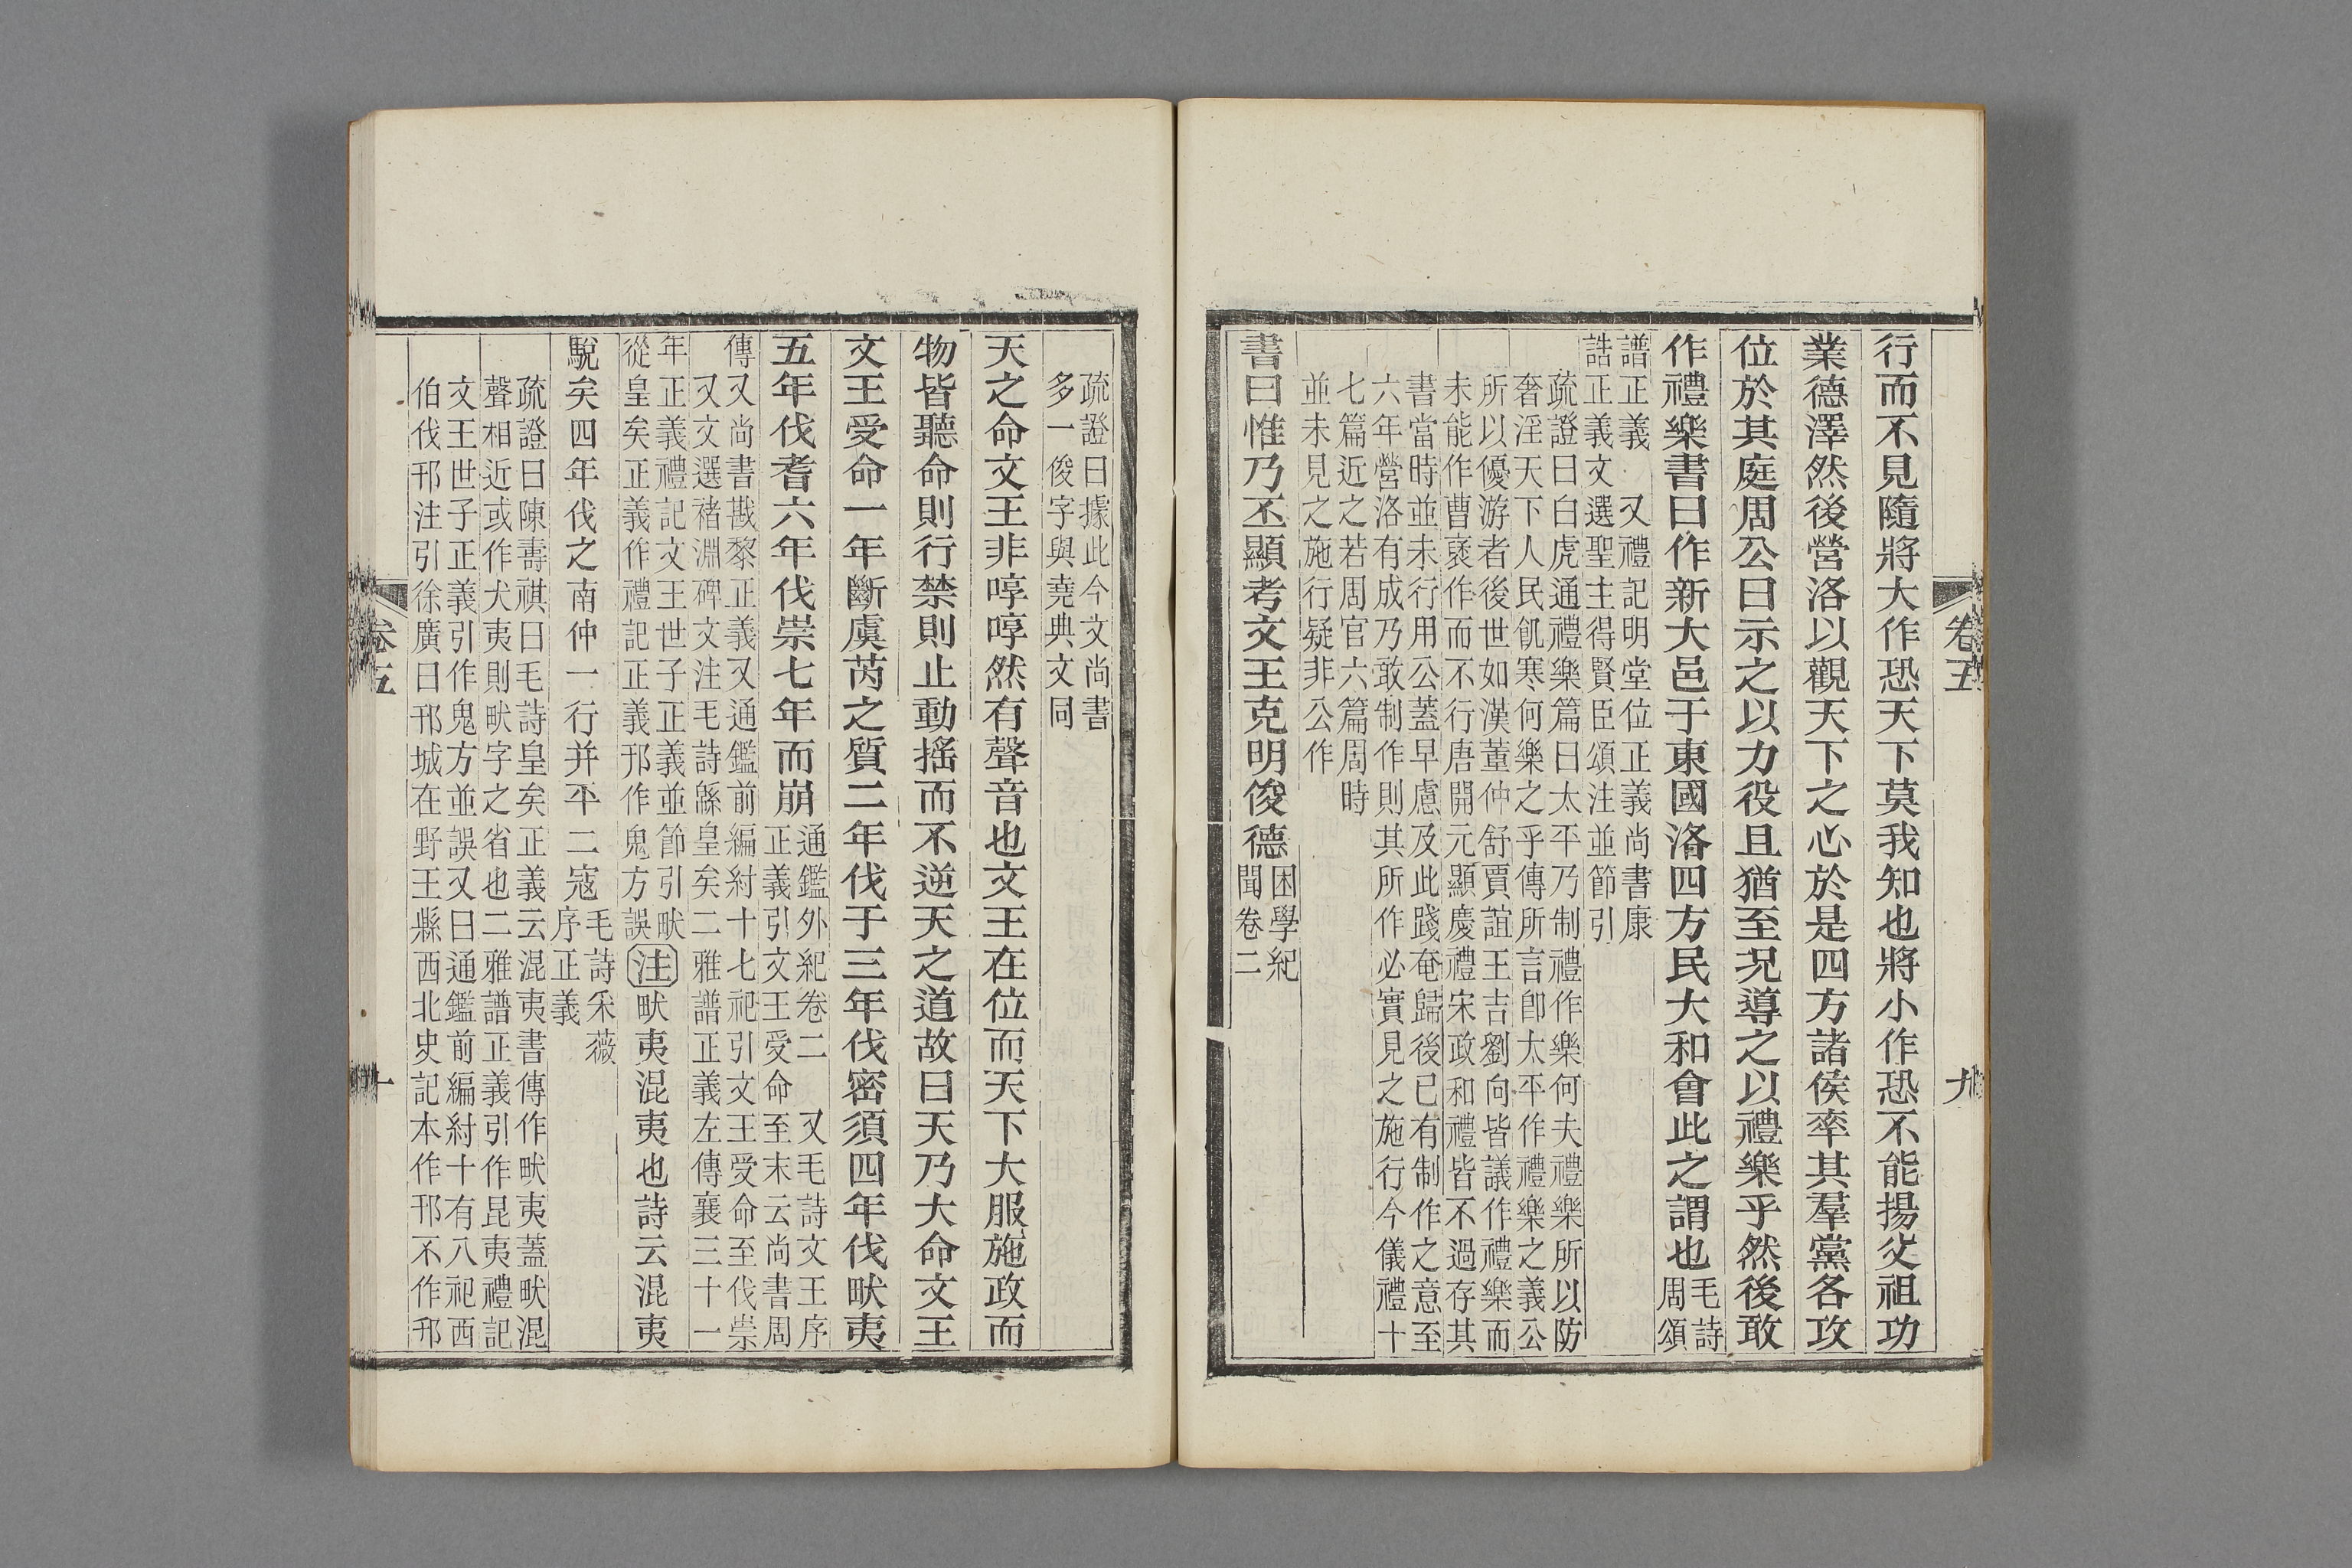 卷五
九
行而不見隨將大作恐天下莫我知也將小作恐不能揚父祖功
業德澤然後營洛以觀天下之心於是四方諸侯率其羣黨各攻
位於其庭周公曰示之以力役且猶至況導之以禮樂乎然後敢
作禮樂書曰作新大邑于東國洛四方民大和會此之謂也毛詩
周頌
譜正義 又禮記明堂位正義尚書康
誥正義文選聖主得賢臣頌注並節引
疏證曰白虎通禮樂篇曰太平乃制禮作樂何夫禮樂所以防
奢淫天下人民飢寒何樂之乎傳所言卽太平作禮樂之義公
所以優游者後世如漢董仲舒賈誼王吉劉向皆議作禮樂而
未能作曹褒作而不行唐開元顯慶禮宋政和禮皆不過存其
書當時並未行用公蓋早慮及此踐奄歸後已有制作之意至
六年營洛有成乃敢制作則其所作必實見之施行今儀禮十
七篇近之若周官六篇周時
並未見之施行疑非公作
書曰惟乃丕顯考文王克明俊德困學紀
聞卷二
疏證曰據此今文尚書
多一俊字與堯典文同
天之命文王非啍啍然有聲音也文王在位而天下大服施政而
物皆聽命則行禁則止動搖而不逆天之道故曰天乃大命文王
文王受命一年斷虞芮之質二年伐于三年伐密須四年伐畎夷
五年伐耆六年伐崇七年而崩通鑑外紀卷二 又毛詩文王序
正義引文王受命至末云尚書周
傳又尚書戡黎正義又通鑑前編紂十七祀引文王受命至伐崇
又文選褚淵碑文注毛詩緜皇矣二雅譜正義左傳襄三十一
年正義禮記文王世子正義並節引畎
從皇矣正義作禮記正義邘作鬼方誤
注畎夷混夷也詩云混夷
駾矣四年伐之南仲一行并平二寇毛詩采薇
序正義
疏證曰陳壽祺曰毛詩皇矣正義云混夷書傳作畎夷蓋畎混
聲相近或作犬夷則畎字之省也二雅譜正義引作昆夷禮記
文王世子正義引作鬼方並誤又曰通鑑前編紂十有八祀西
伯伐邘注引徐廣曰邘城在野王縣西北史記本作邘不作邗
卷五
十